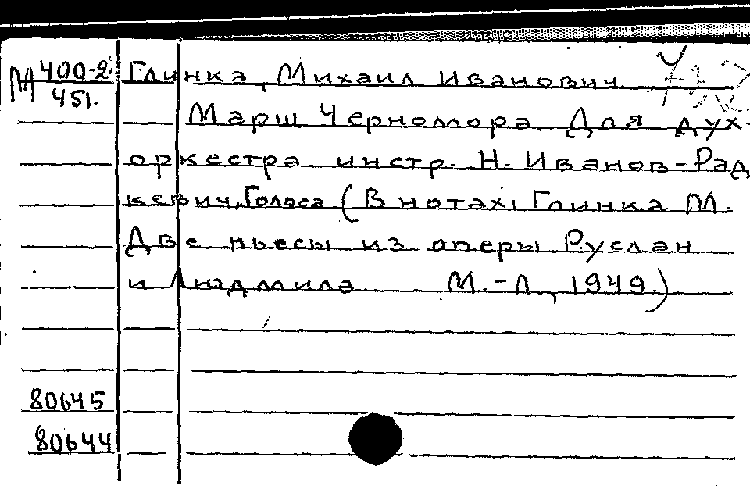 М 400-2 Глинка, Михаил Иванович
451.
Марш Черномора Для дух
оркестра инстр. Н. Иванов-Рад
кевич. Голоса (В нотах: Глинка М.
Две пьесы из оперы Руслан
и Людмила М.-Л., 1949.)
80645
80644